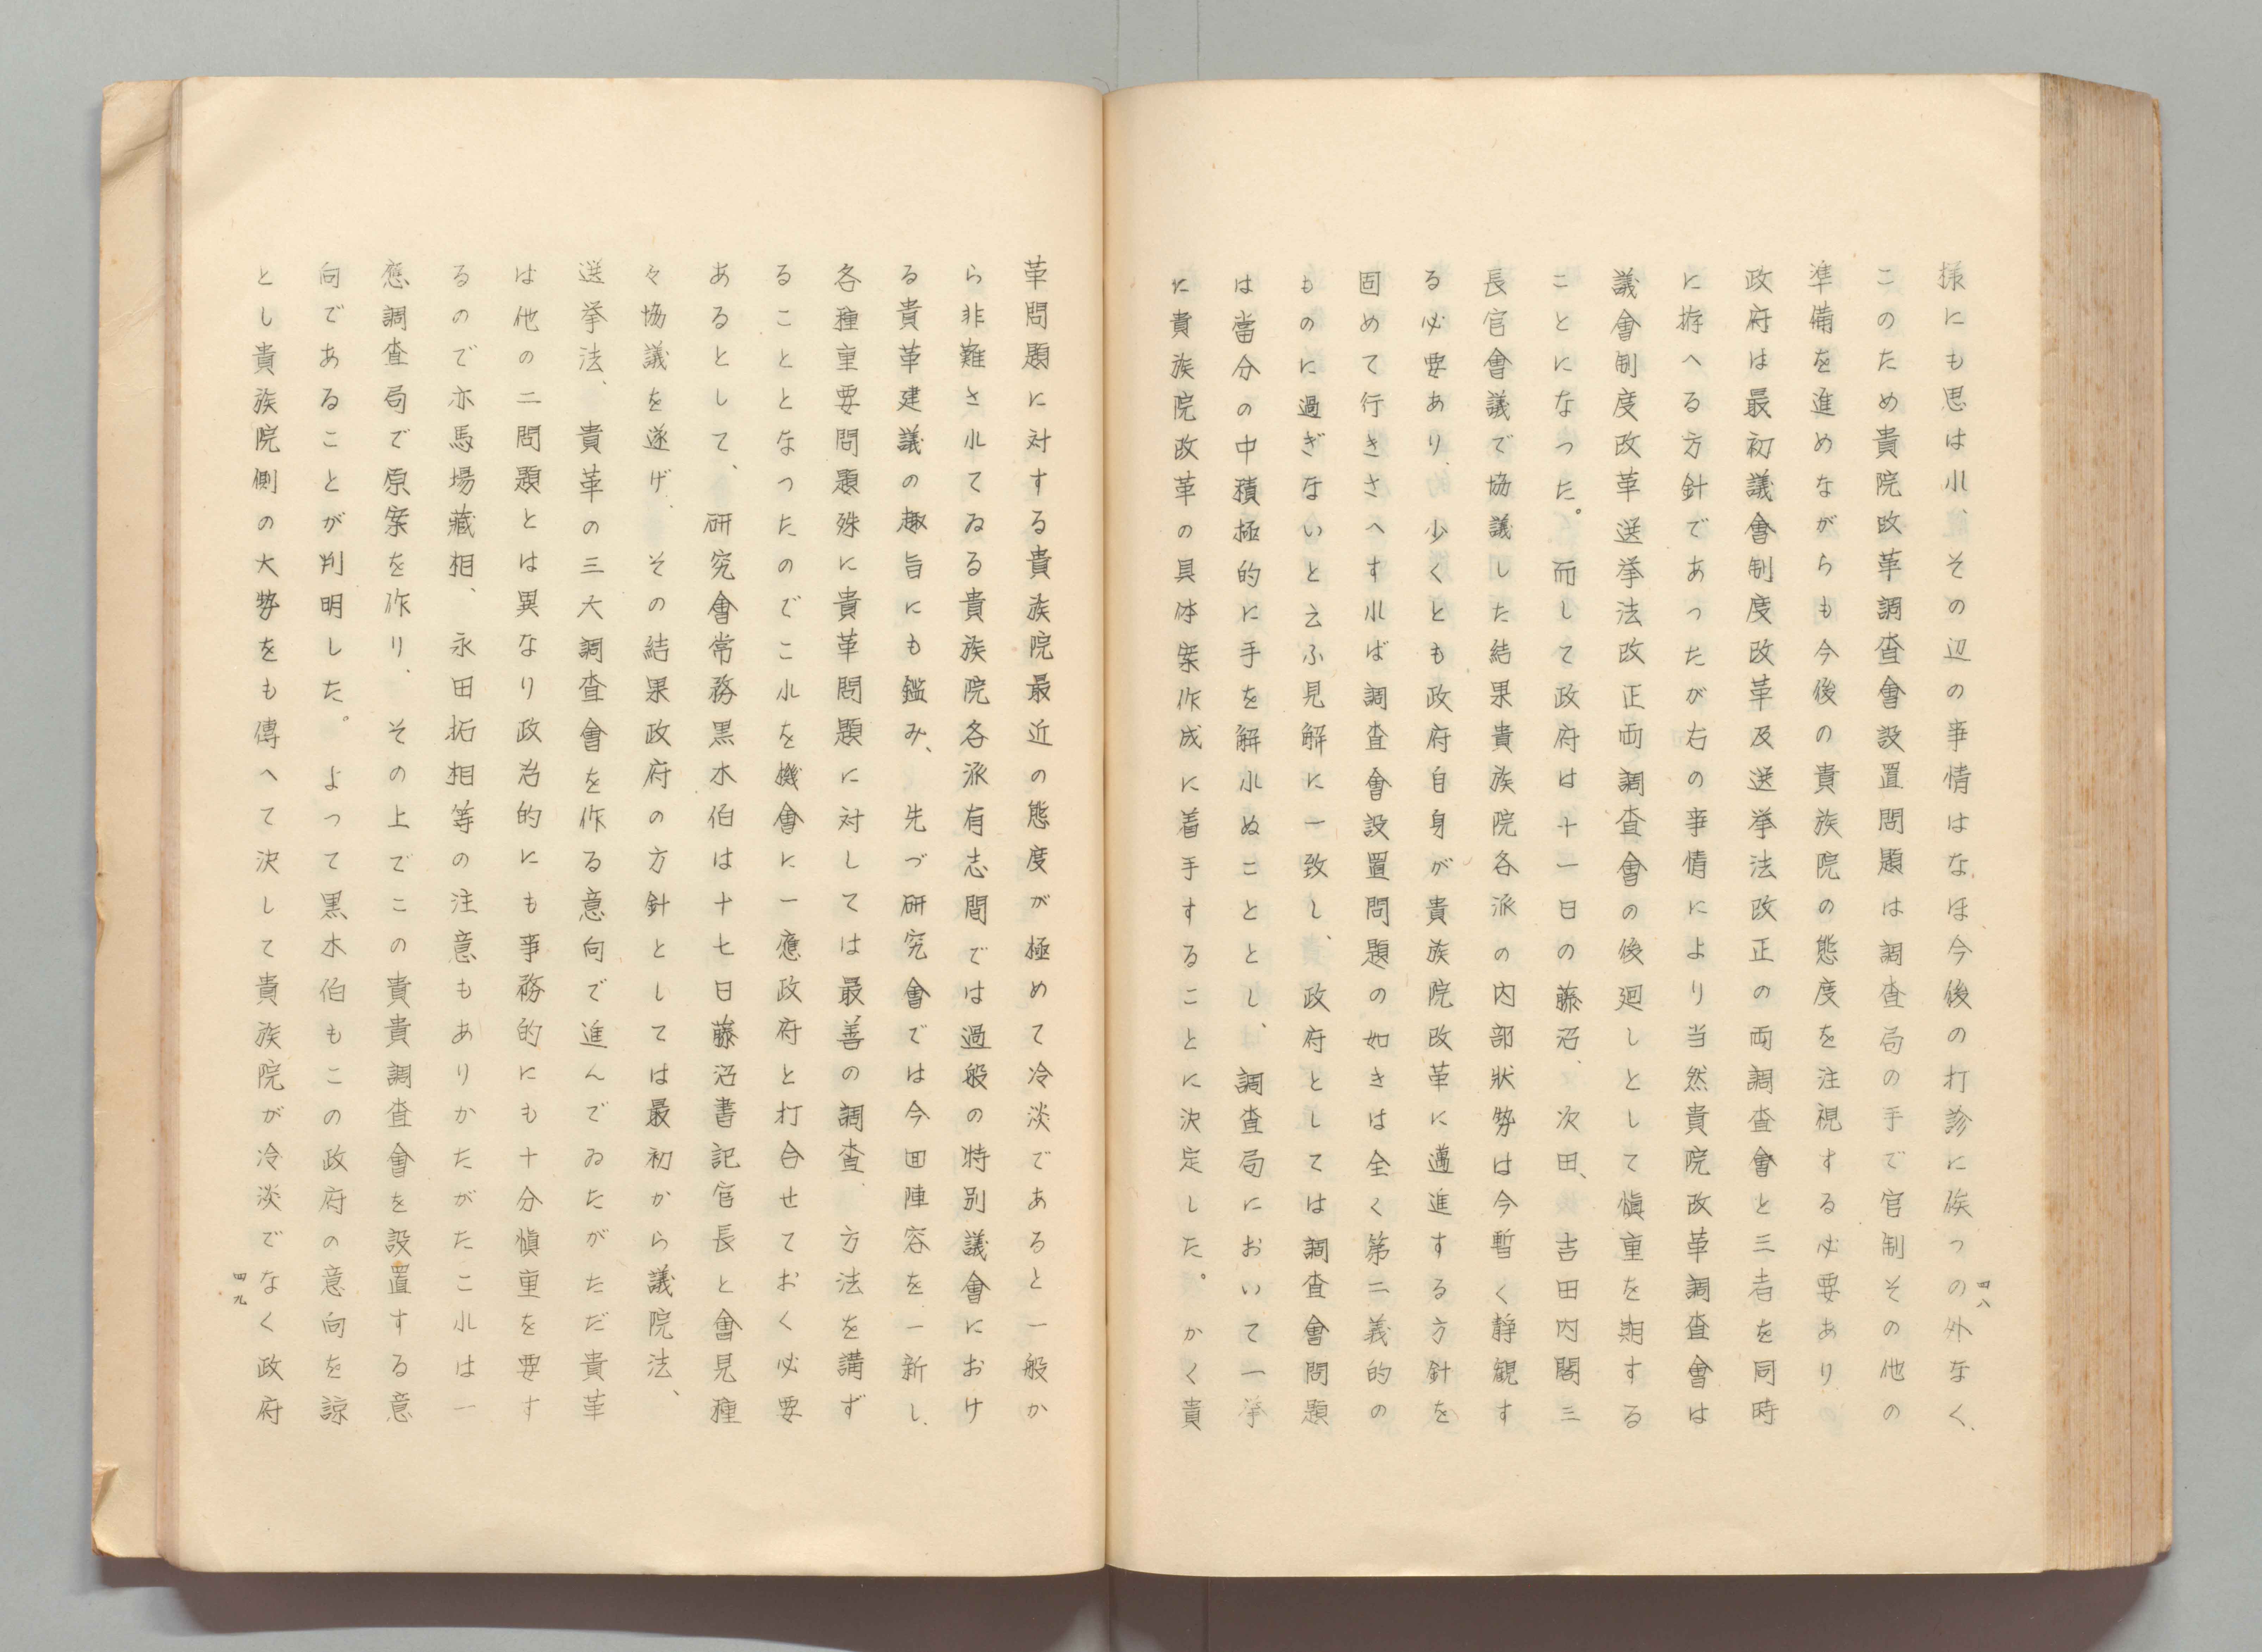 様にも思はれ、その辺の事情はなほ今後の打診に俟つの外なく、
このため貴院改革調査會設置問題は調査局の手で官制その他の
準備を進めながらも今後の貴族院の態度を注視する必要あり
政府は最初議會制度改革及選挙法改正の両調査會と三者を同時
に拵へる方針であつたが右の事情により当然貴院改革調査會は
議會制度改革選挙法改正両調査會の後廻しとして愼重を期する
ことになつた。而して政府は十一日の藤沼、次田、吉田内閣三
長官會議で協議した結果貴族院各派の内部狀勢は今暫く靜観す
る必要あり、少くとも政府自身が貴族院改革に邁進する方針を
固めて行きさへすれば調査會設置問題の如きは全く第二義的の
ものに過ぎないと云ふ見解に一致し、政府としては調査會問題
は當分の中積極的に手を解れぬこととし、調査局において一挙
に貴族院改革の具体案作成に着手することに決定した。かく貴
四八
革問題に対する貴族院最近の態度が極めて冷淡であると一般か
ら非難されてゐる貴族院各派有志間では過般の特別議會におけ
る貴革建議の趣旨にも鑑み、先づ研究會では今囬陣容を一新し、
各種重要問題殊に貴革問題に対しては最善の調査、方法を講ず
ることとなつたのでこれを機會に一應政府と打合せておく必要
あるとして、研究會常務黒木伯は十七日藤沼書記官長と會見種
々協議を遂げ、その結果政府の方針としては最初から議院法、
選挙法、貴革の三大調査會を作る意向で進んでゐたがただ貴革
は他の二問題とは異なり政治的にも事務的にも十分愼重を要す
るので亦馬場藏相、永田拓相等の注意もありかたがたこれは一
應調査局で原案を作り、その上でこの貴貴調査會を設置する意
向であることが判明した。よつて黒木伯もこの政府の意向を諒
とし貴族院側の大勢をも傳へて決して貴族院が冷淡でなく政府
四九